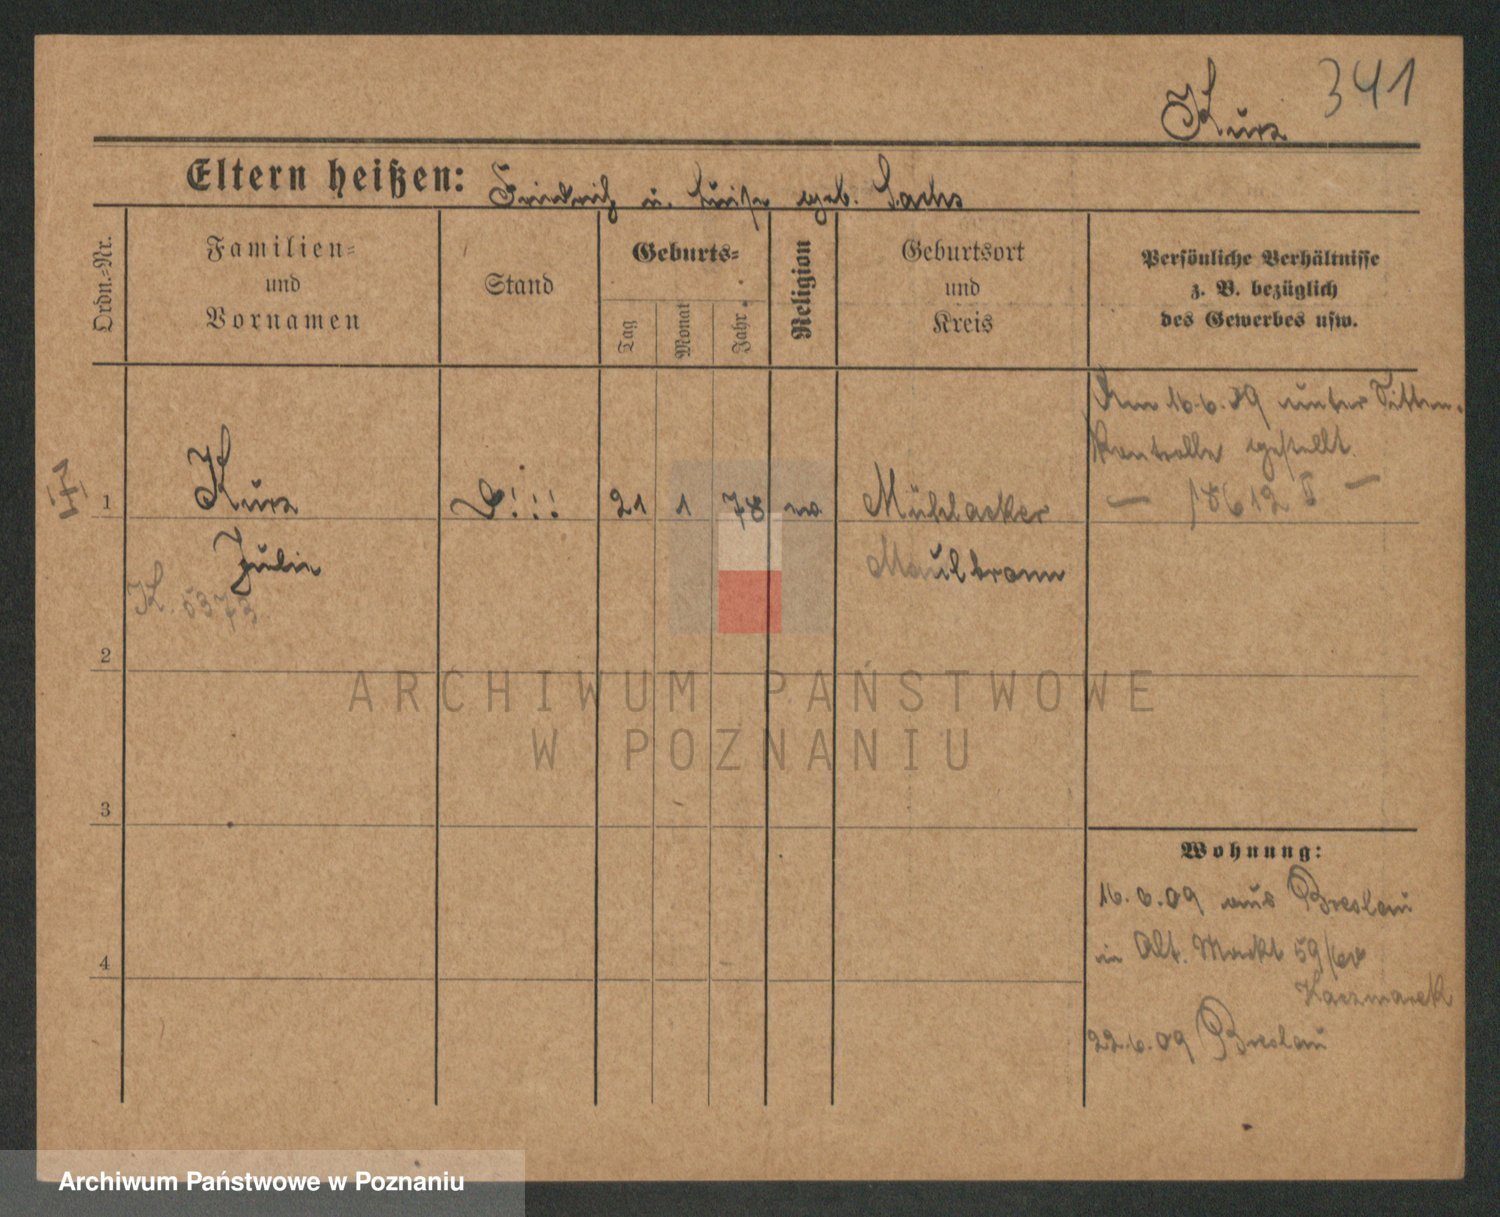 341
Kurz
Eltern heißen: Friedrich u. Luise geb. Sachs
Ordn.-Nr.
Familien-
und
Vornamen
Stand
Geburts-
Tag
Monat
Jahr
Religion
Geburtsort
und
Kreis
Persönliche Verhältnisse
z. B. bezüglich
des Gewerbes usw.
Am 16.6.09 unter Sitten-
kontrolle gestellt.
— 18612 —
1
Kurz
21 1 78
Mühlacker
Julie
Maulbronn
K. 5373
2
ARCHIWUM PAŃSTWOWE
W POZNANIU
3
Wohnung:
16.6.09 aus Breslau
in Alt. Markt 59
Kaczmarek
4
22.6.09 Breslau
Archiwum Państwowe w Poznaniu